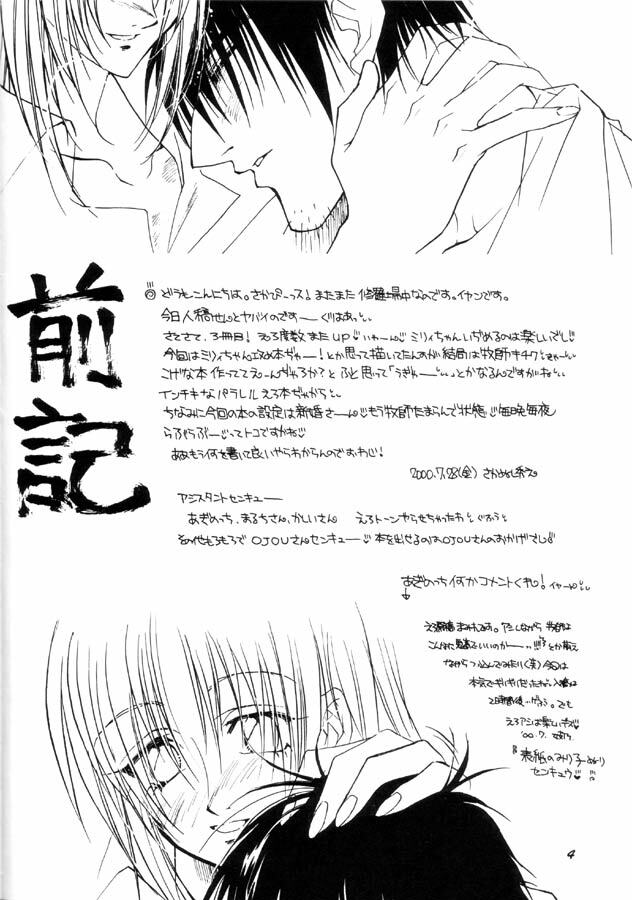 前記
どうもこんにちは。さかぴーっス!またまた修羅場中なのです。イヤンです。
今日入稿せぬとヤバイのですー ぐはあっ
さてさて、3冊目!えろ度数またUP いゃーん ミリィちゃんいぢめるのは楽しいでし
今回はミリィちゃん エロ本ぢゃー!とか思って描いてたんのが結局は牧師キチク ぎゃー
こげな本作っててえーんぢゃろか?とふと思って「うぎゃー」とかなるんですがね
インチキなパラレルえろ本ぢゃから
ちなみに今回の本の設定は新婚さーん もう牧師たまらんで状態 毎晩毎夜
らぶらぶーってトコですかね
ああもう何を書いて良いやらわからんのですわい!
2000.7.28(金)
アシスタントセンキュー
あぎめっち、まるちさん、かしいさん えろトーンやらせちゃったわ ぐふふ
その他もろもろで OJOUさんセンキュー 本を出せるのはOJOUさんのおかげさし
あぎめっち何かコメントくれ!イヤーん
えろ原稿まみれです。アシしながら牧師は
こんなに鬼畜でいいのかー とか萌え
ながらつっ込んでみたり(笑)今回は
本気でギリギリだったね 入稿は
2時間後… でも
えろアシは楽しいっす
'00.7.
『表紙のみり子ぬり
センキュウ
4